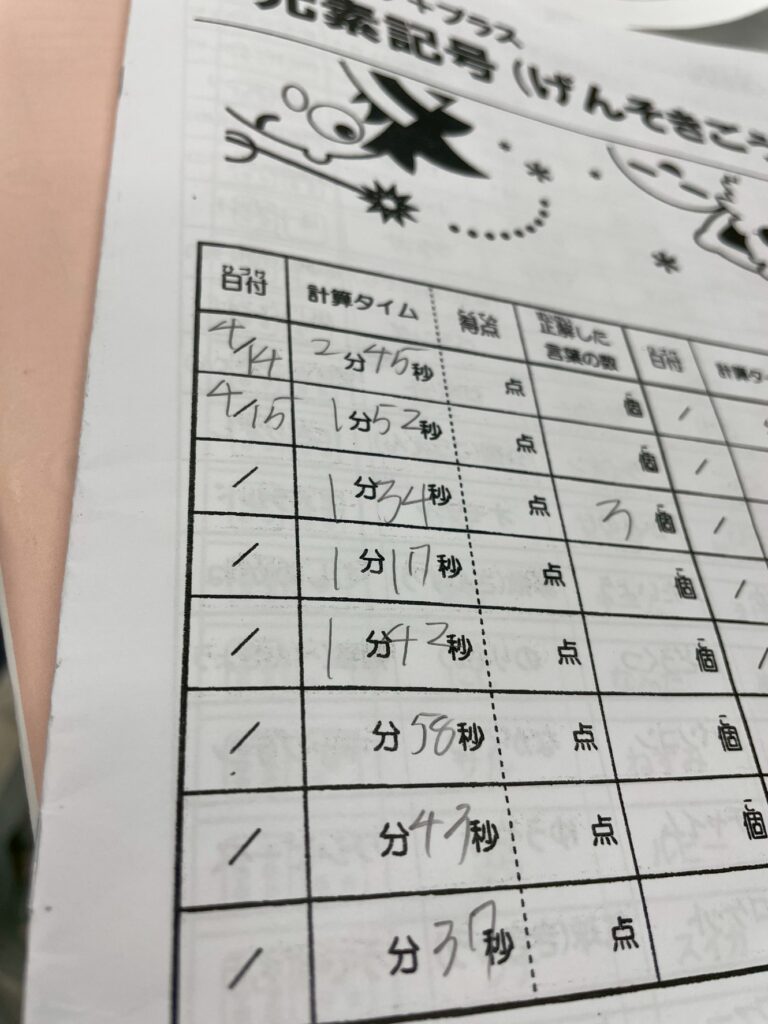 プラス
元素記号(げんそきごう
日付 計算タイム 得点 正解した言葉の数 日付 計算タ
4/14 2分45秒 点 個 /
4/15 1分52秒 点 個 /
/ 1分34秒 点 3個 /
/ 1分17秒 点 個 /
/ 1分42秒 点 個 /
/ 分58秒 点 個
/ 分43秒 点 個
/ 分37秒 点